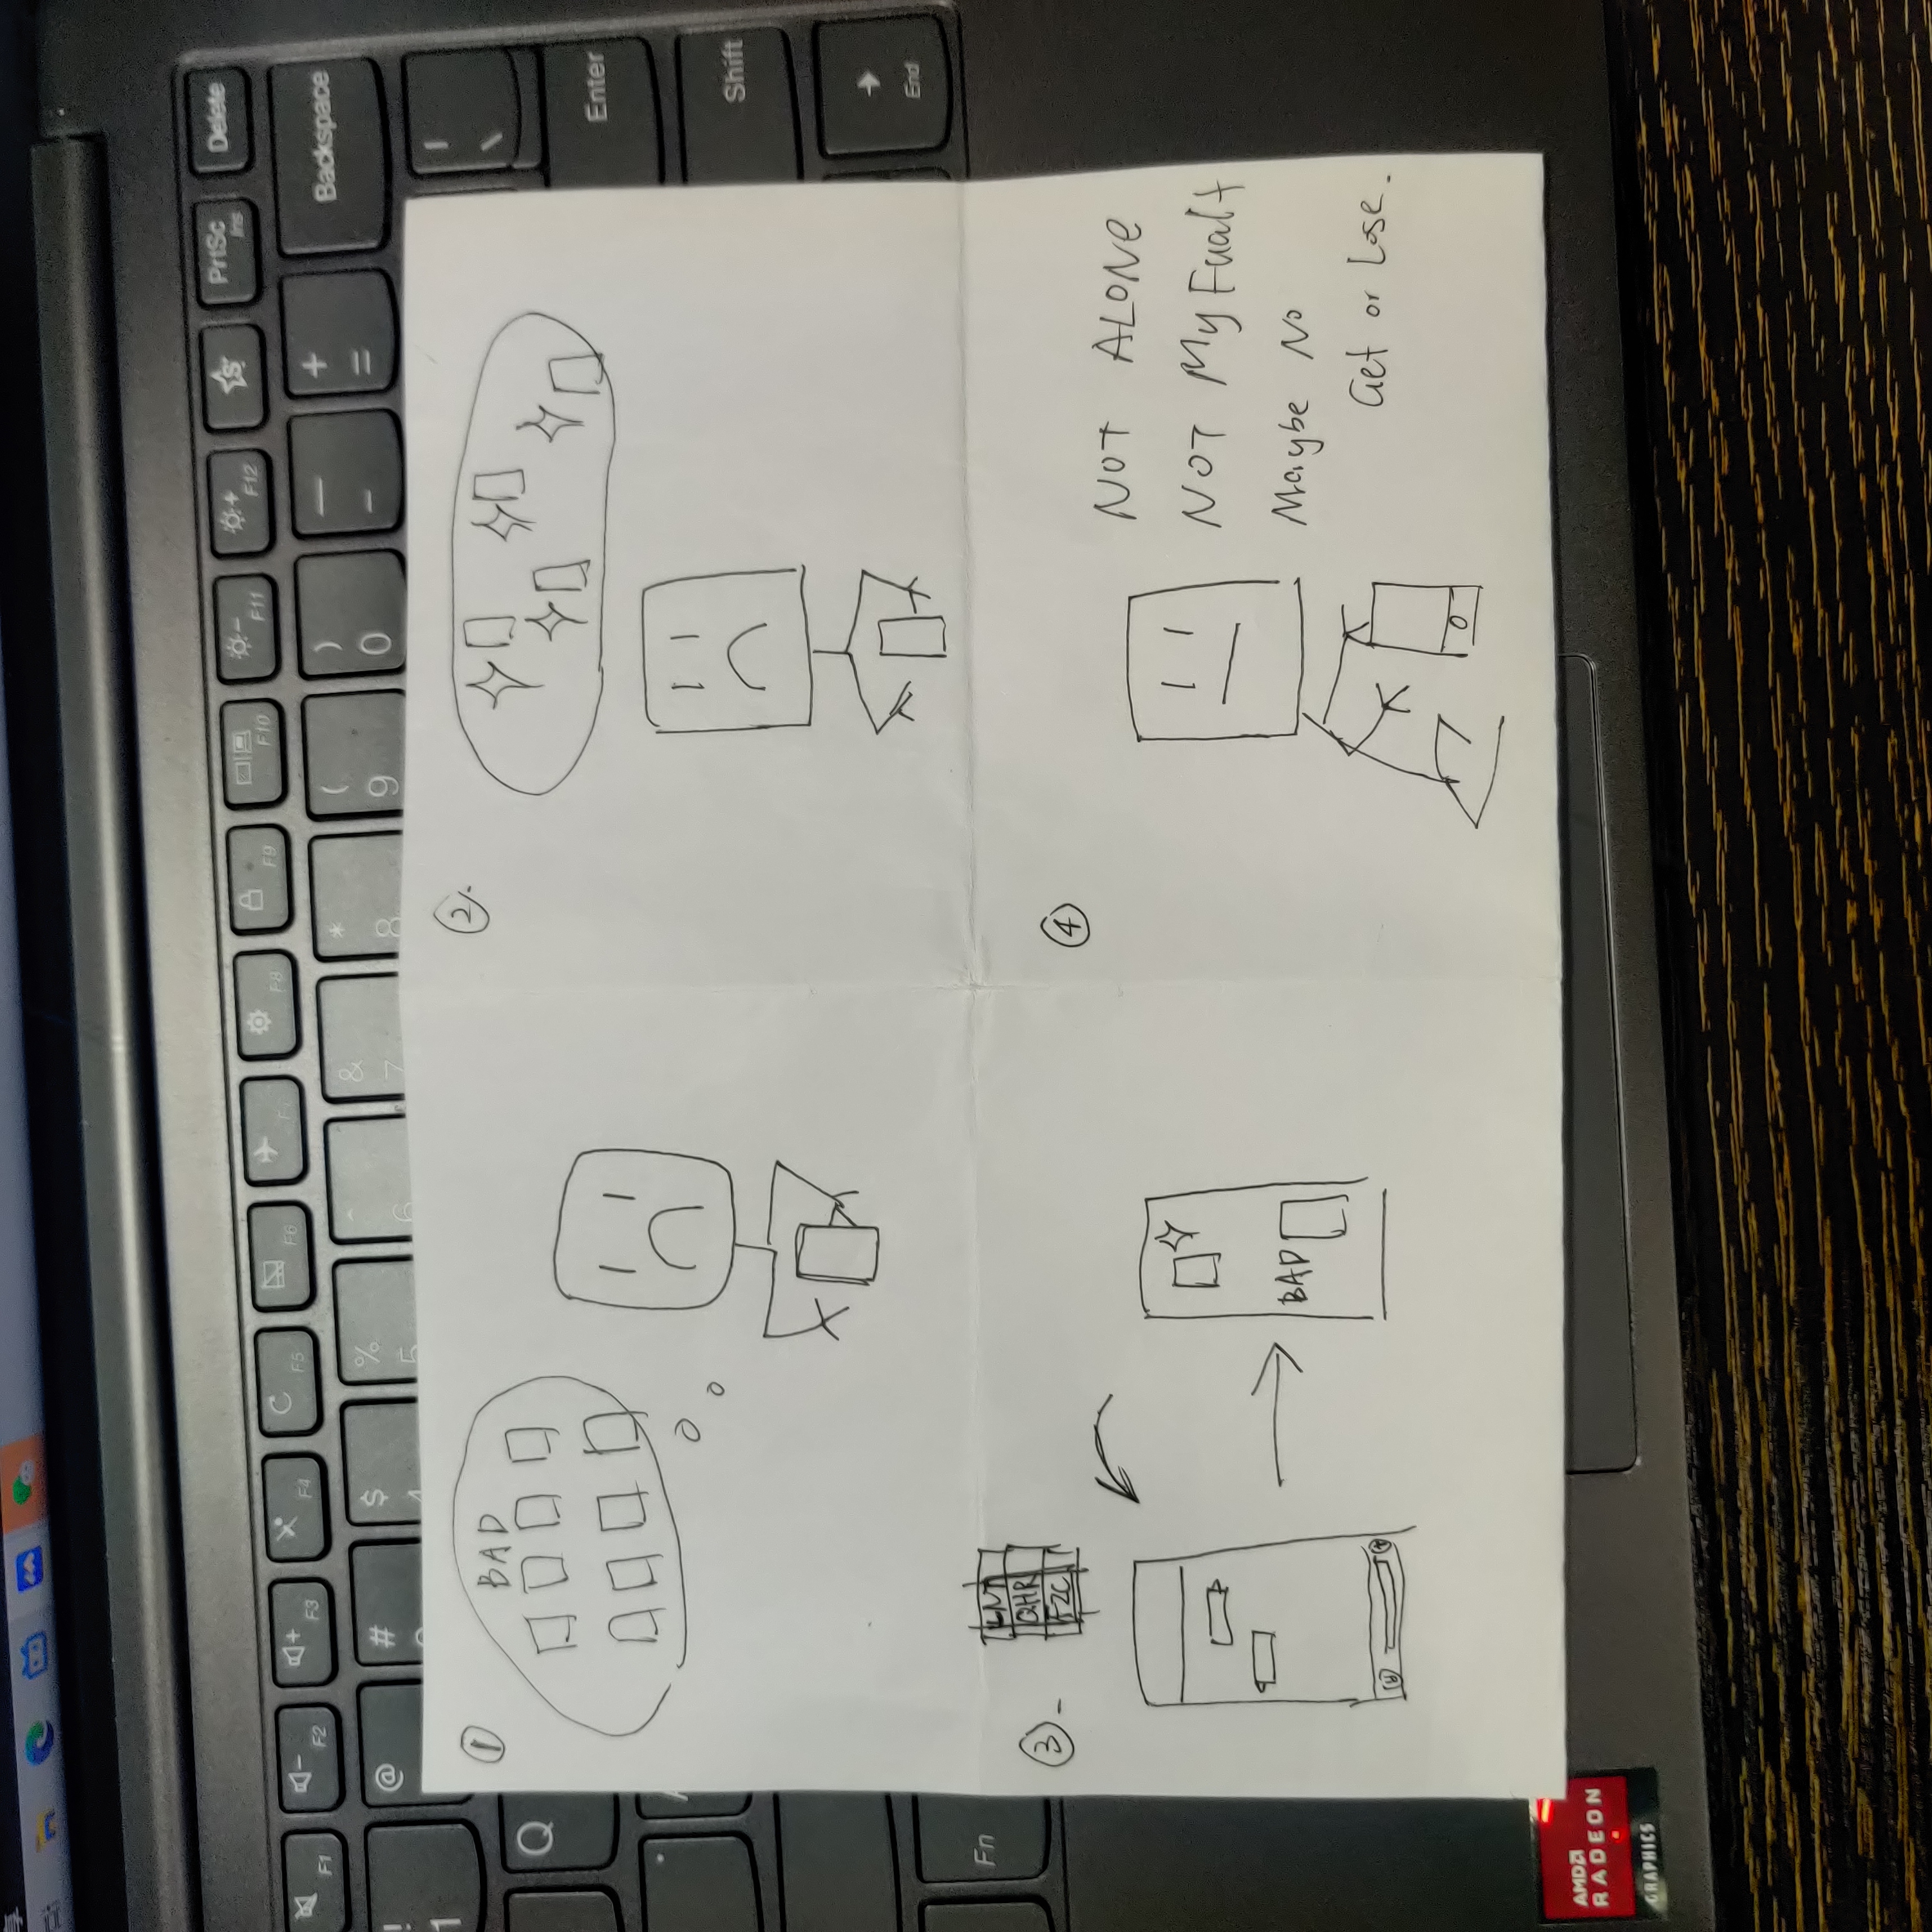 F1
F2
F3
F4
F5
F6
F8
F9
F10
F11
F12
S
PrtSc
Ins
Delete
!
1
@
#
$
%
&
*
8
(
9
)
0
—
-
+
=
Backspace
Q
|
\
Enter
Shift
Fn
End
①
BAD
②.
③-
QHR
FZC
BAD
④
NOT ALONe
NOT My Fualt
Maybe No
Get or Lose.
AMD
RADEON
GRAPHICS